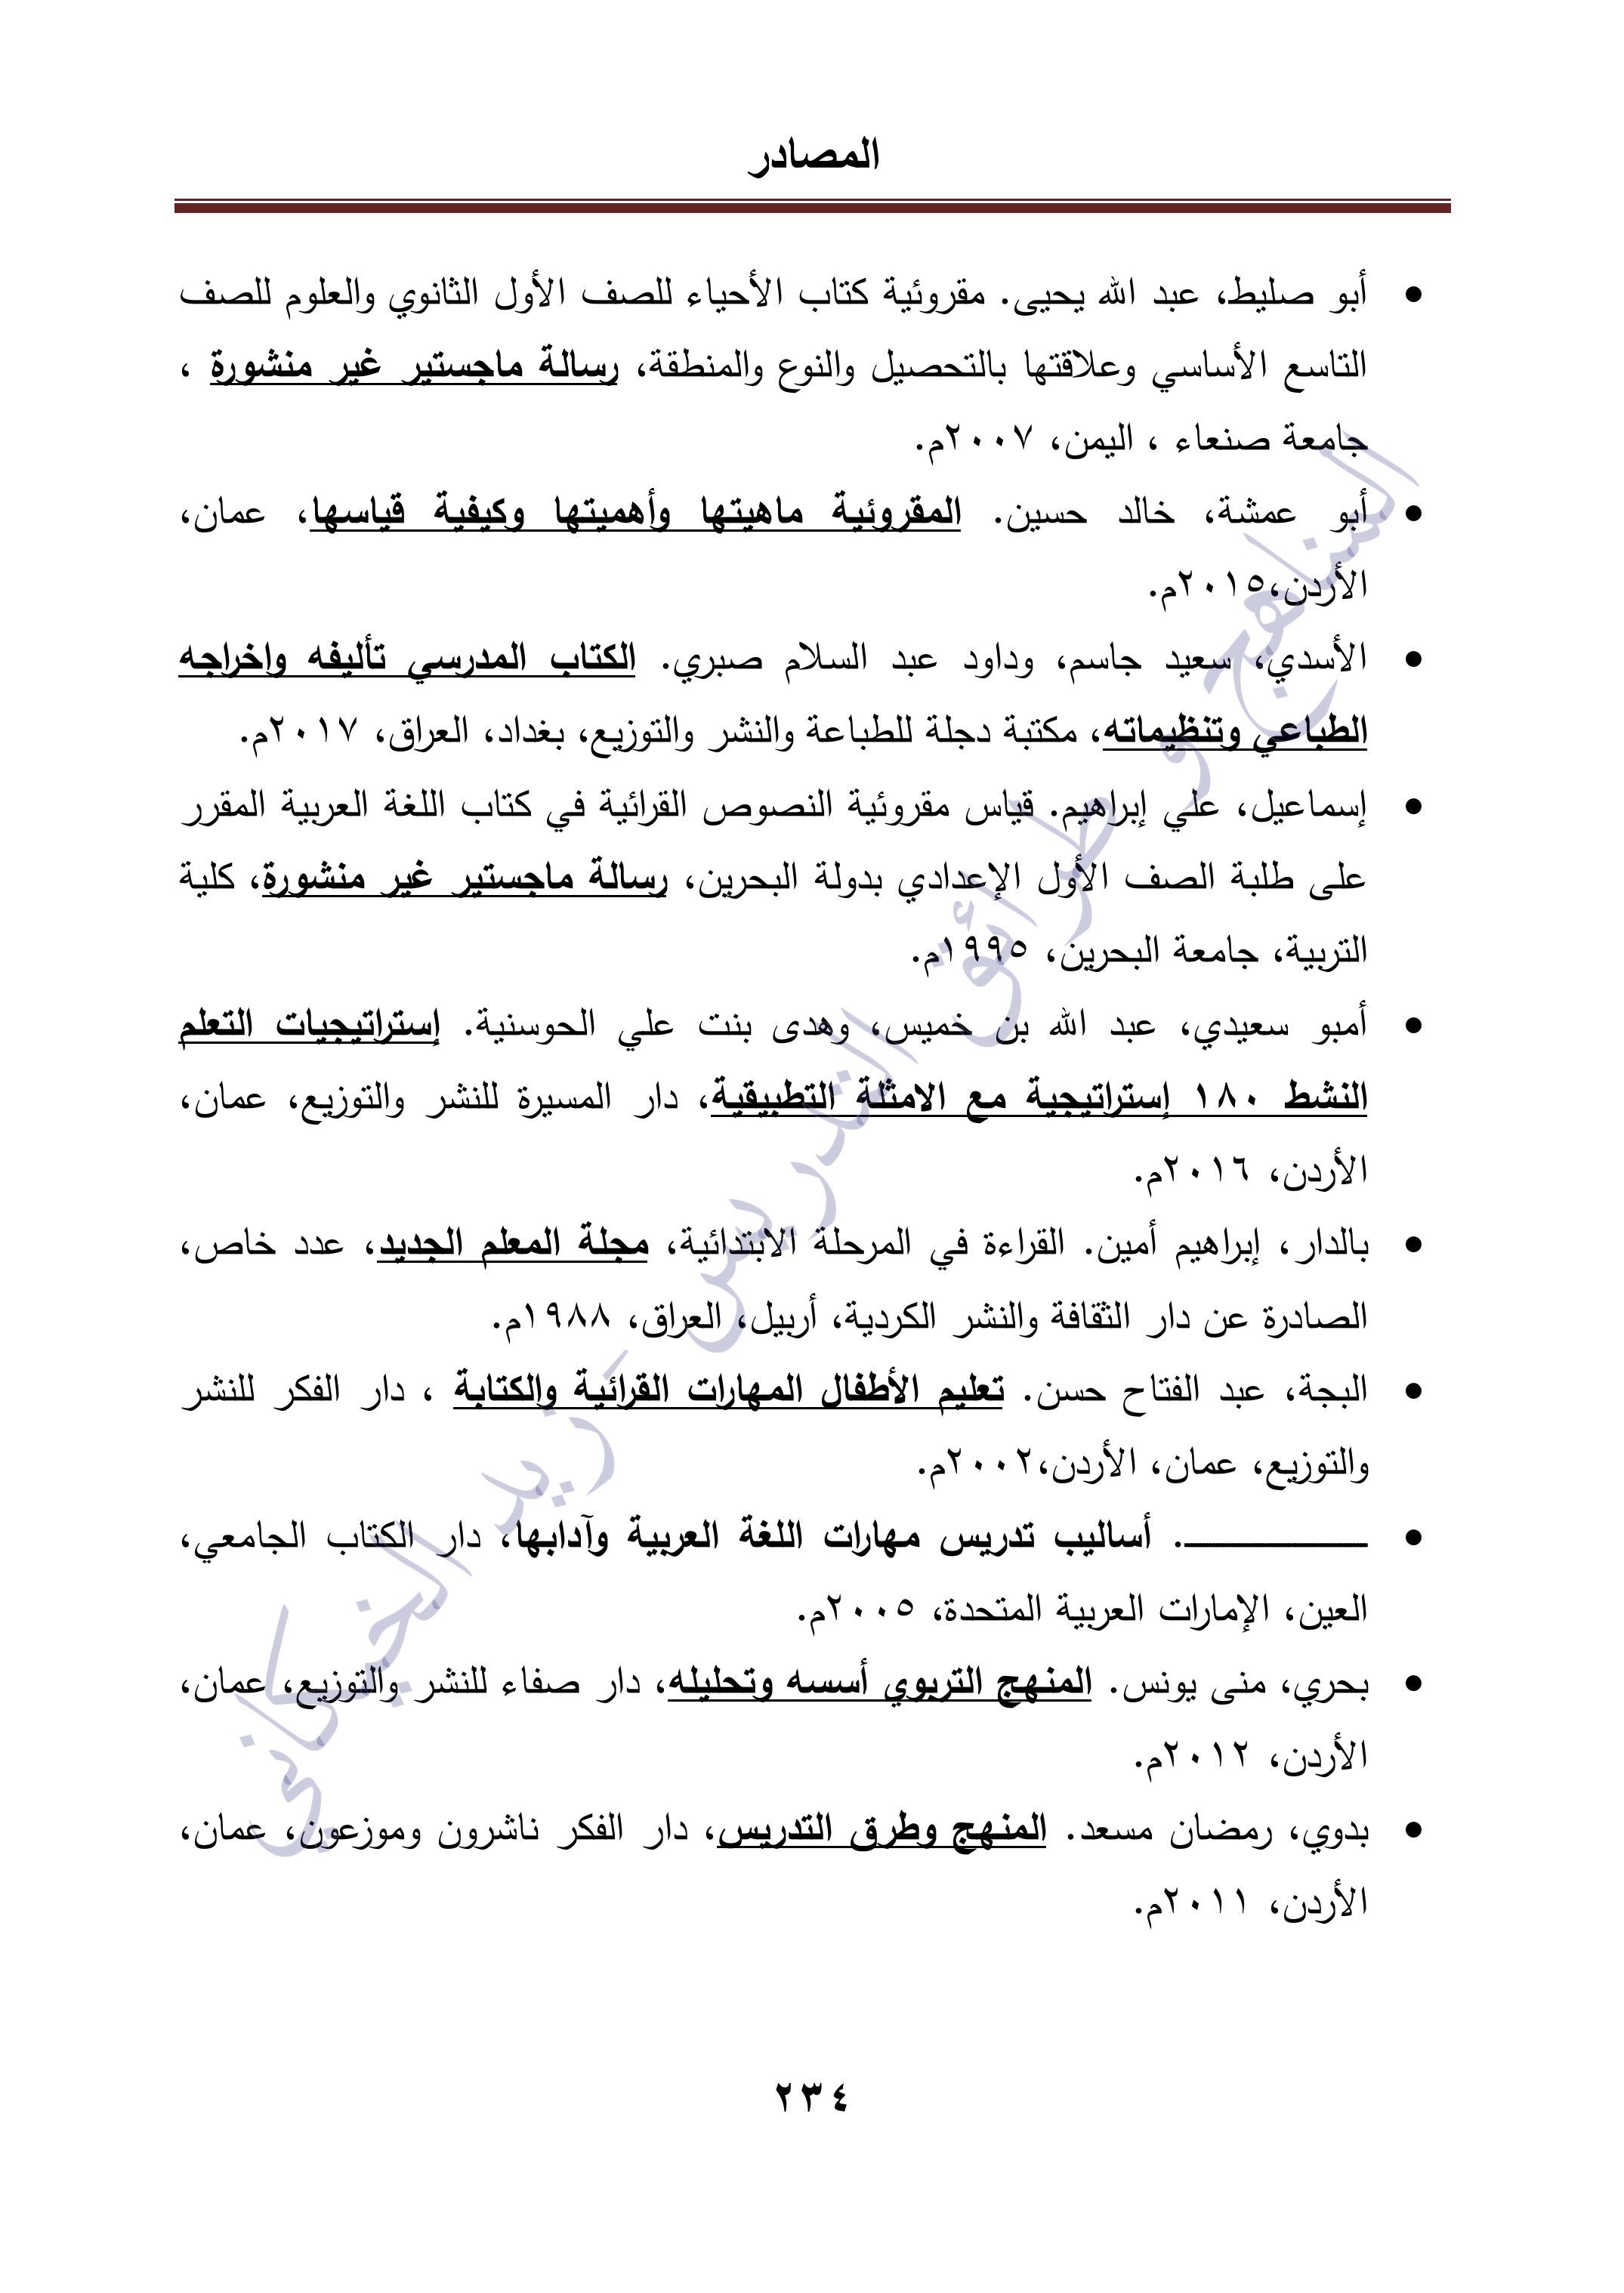 المصادر
• أبو صليط، عبد الله يحيى. مقروئية كتاب الأحياء للصف الأول الثانوي والعلوم للصف
التاسع الأساسي وعلاقتها بالتحصيل والنوع والمنطقة، رسالة ماجستير غير منشورة ،
جامعة صنعاء ، اليمن، ٢٠٠٧م.
• أبو عمشة، خالد حسين. المقروئية ماهيتها وأهميتها وكيفية قياسها، عمان،
الأردن،٢٠١٥م.
• الأسدي، سعيد جاسم، وداود عبد السلام صبري. الكتاب المدرسي تأليفه واخراجه
الطباعي وتنظيماته، مكتبة دجلة للطباعة والنشر والتوزيع، بغداد، العراق، ٢٠١٧م.
• إسماعيل، علي إبراهيم. قياس مقروئية النصوص القرائية في كتاب اللغة العربية المقرر
على طلبة الصف الأول الإعدادي بدولة البحرين، رسالة ماجستير غير منشورة، كلية
التربية، جامعة البحرين، ١٩٩٥م.
• أمبو سعيدي، عبد الله بن خميس، وهدى بنت علي الحوسنية. إستراتيجيات التعلم
النشط ١٨٠ إستراتيجية مع الامثلة التطبيقية، دار المسيرة للنشر والتوزيع، عمان،
الأردن، ٢٠١٦م.
• بالدار، إبراهيم أمين. القراءة في المرحلة الابتدائية، مجلة المعلم الجديد، عدد خاص،
الصادرة عن دار الثقافة والنشر الكردية، أربيل، العراق، ١٩٨٨م.
• البجة، عبد الفتاح حسن. تعليم الأطفال المهارات القرائية والكتابة ، دار الفكر للنشر
والتوزيع، عمان، الأردن،٢٠٠٢م.
• ـــــــــــــــــ. أساليب تدريس مهارات اللغة العربية وآدابها، دار الكتاب الجامعي،
العين، الإمارات العربية المتحدة، ٢٠٠٥م.
• بحري، منى يونس. المنهج التربوي أسسه وتحليله، دار صفاء للنشر والتوزيع، عمان،
الأردن، ٢٠١٢م.
• بدوي، رمضان مسعد. المنهج وطرق التدريس، دار الفكر ناشرون وموزعون، عمان،
الأردن، ٢٠١١م.
٢٣٤
المناهج و طرائق التدريس - زيد الخيكاني